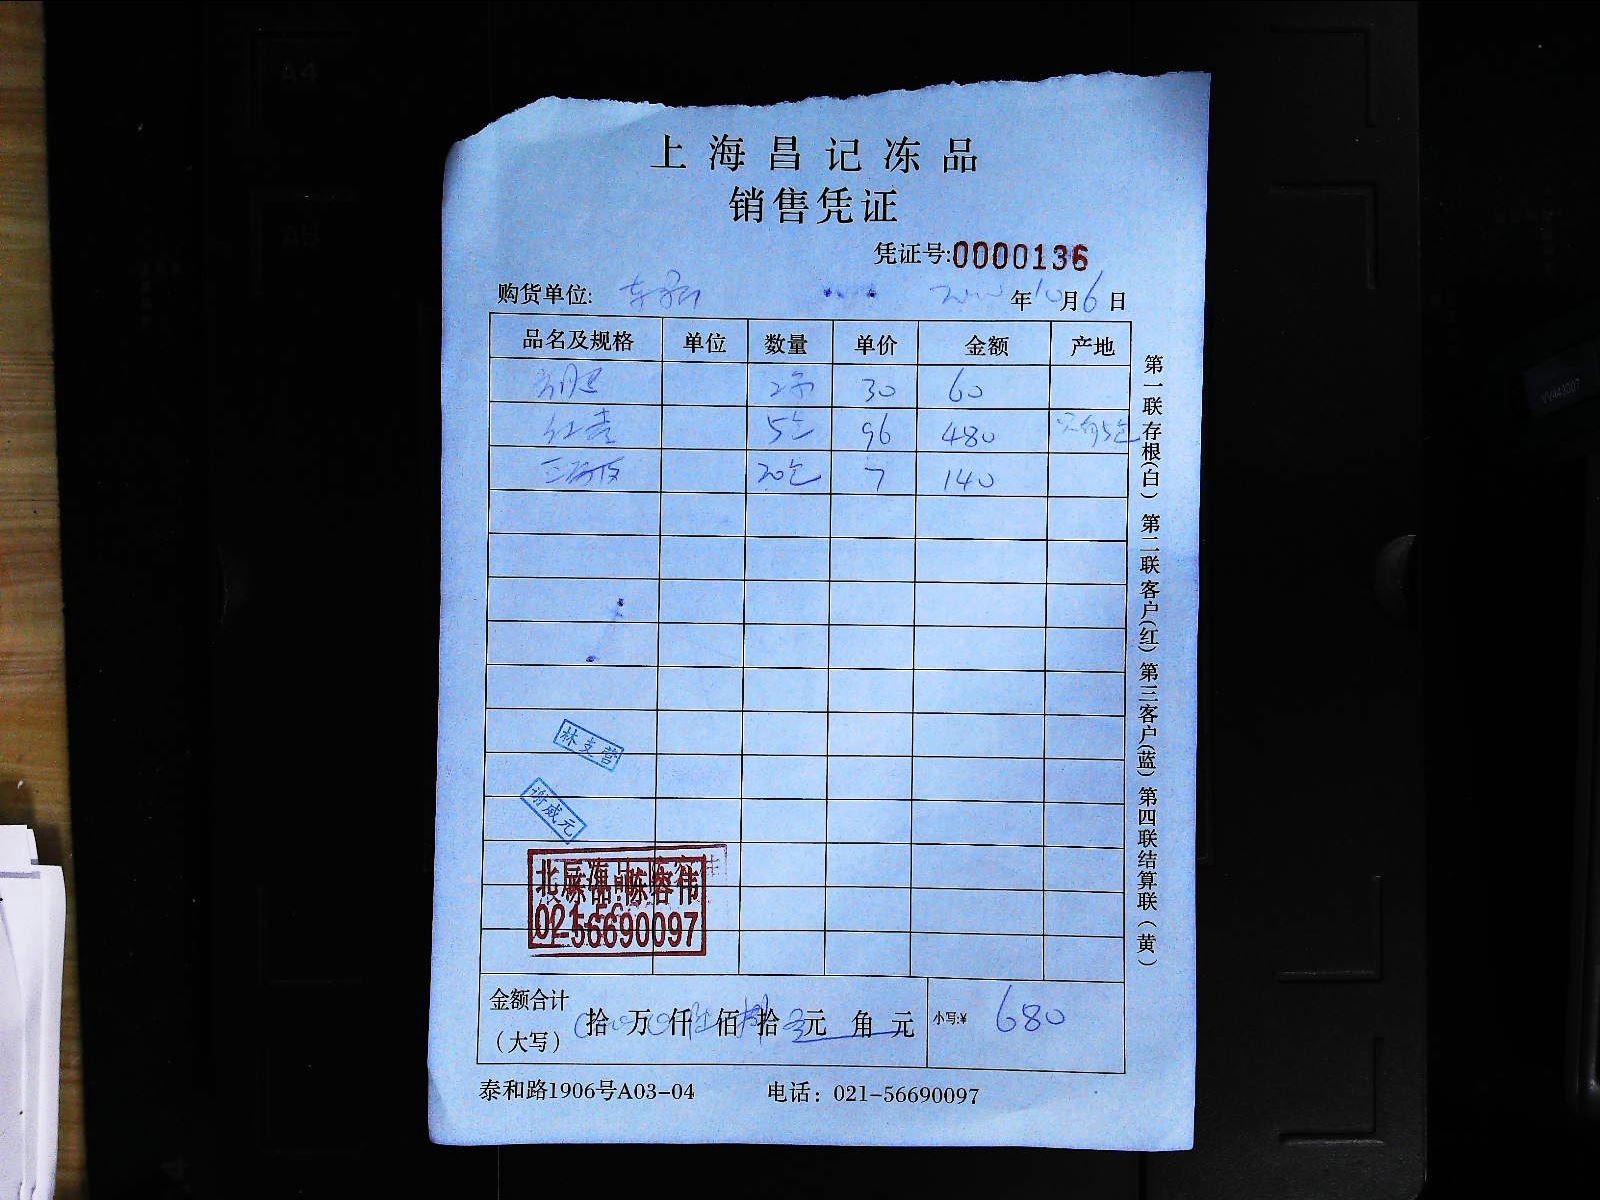 上海昌记冻品
销售凭证
凭证号:0000136
购货单位: 年10月6日
品名及规格 单位 数量 单价 金额 产地
30 60
红 5包 96 480 只有5包
20包 7 140
林支营
谢威元
021-56690097
金额合计(大写) 拾 万 仟 佰 拾 元 角 元 小写:¥ 680
泰和路1906号A03-04 电话：021-56690097
第一联存根(白) 第二联客户(红) 第三客户(蓝) 第四联结算联(黄)
A4
A5